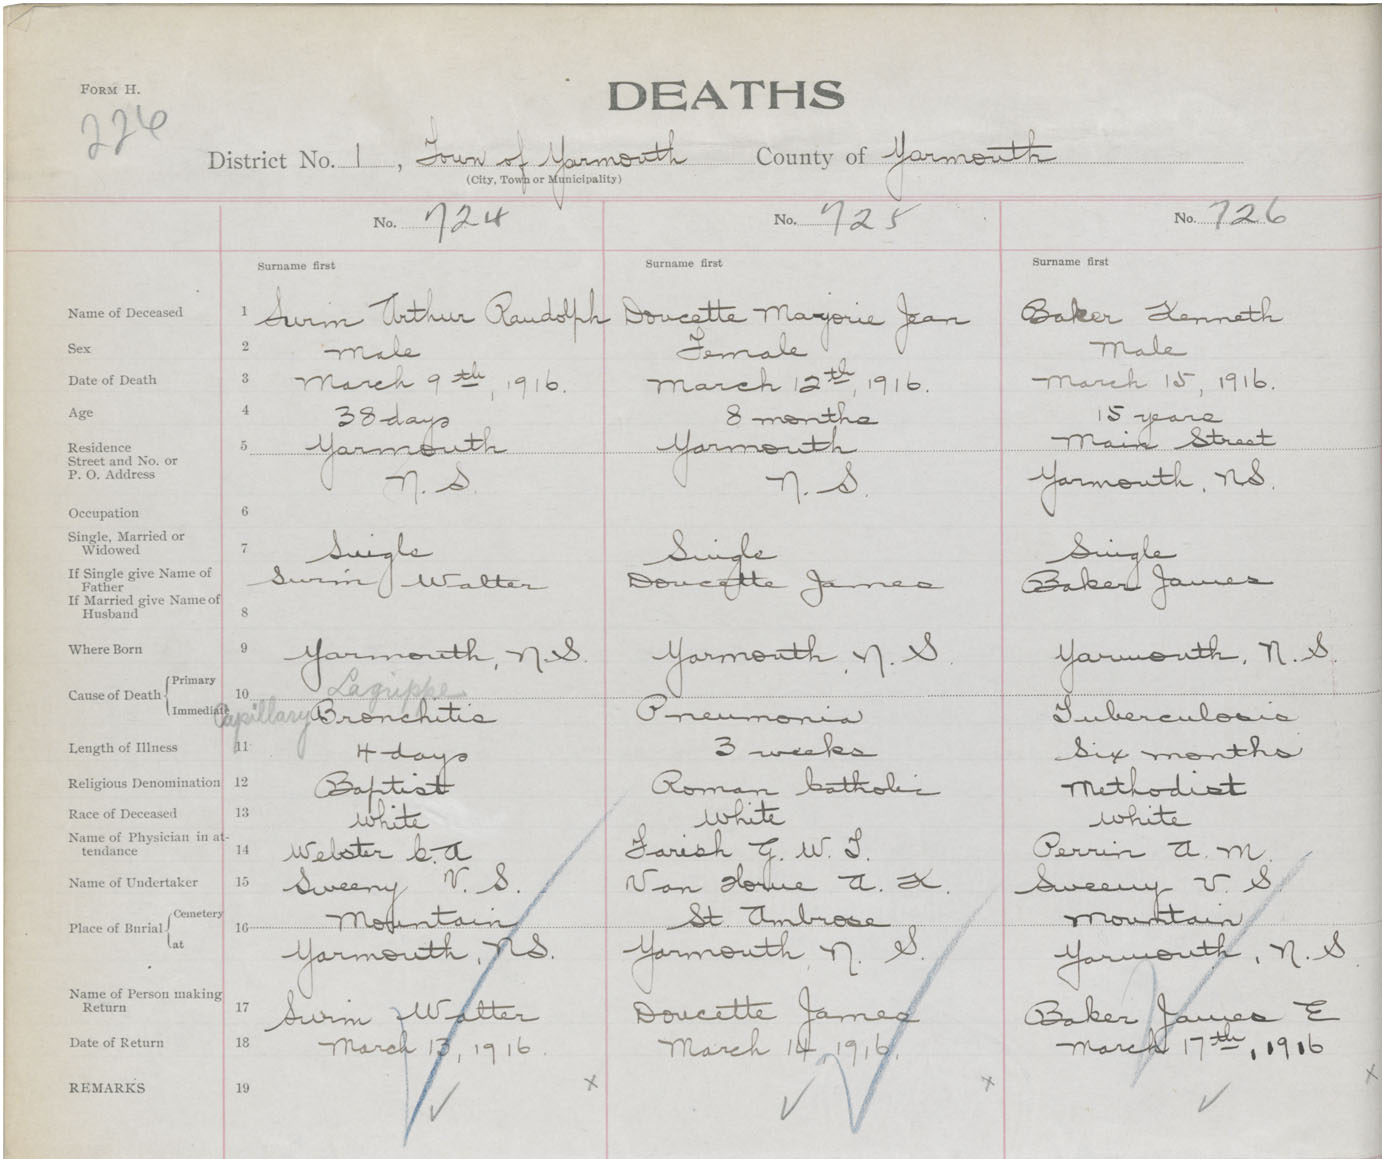 FORM H.
DEATHS
226
District No. 1, Town of Yarmouth County of Yarmouth
(City, Town or Municipality)
No. 724 No. 725 No. 726
Surname first Surname first Surname first
Name of Deceased 1 Swim Arthur Randolph Doucette Marjorie Jean Baker Kenneth
Sex 2 Male Female Male
Date of Death 3 March 9th, 1916. March 12th, 1916. March 15, 1916.
Age 4 38 days 8 months 15 years
Residence 5 Yarmouth Yarmouth Main Street
Street and No. or
P. O. Address N. S. N. S. Yarmouth, NS.
Occupation 6
Single, Married or
Widowed 7 Single Single Single
If Single give Name of
Father Swim Walter Doucette James Baker James
If Married give Name of
Husband 8
Where Born 9 Yarmouth, N.S. Yarmouth, N. S. Yarmouth, N. S.
Cause of Death Primary 10 Lagrippe
Immediate Capillary Bronchitis Pneumonia Tuberculosis
Length of Illness 11 4 days 3 weeks Six months
Religious Denomination 12 Baptist Roman Catholic Methodist
Race of Deceased 13 White White White
Name of Physician in at-
tendance 14 Webster C. A Farish G. W. T. Perrin A. M.
Name of Undertaker 15 Sweeny V. S. Van Horne A. K. Sweeny V. S.
Place of Burial Cemetery 16 Mountain St. Ambrose Mountain
at Yarmouth, NS. Yarmouth N. S. Yarmouth, N. S.
Name of Person making
Return 17 Swim Walter Doucette James Baker James E
Date of Return 18 March 13, 1916. March 14, 1916. March 17th, 1916
REMARKS 19 x x x